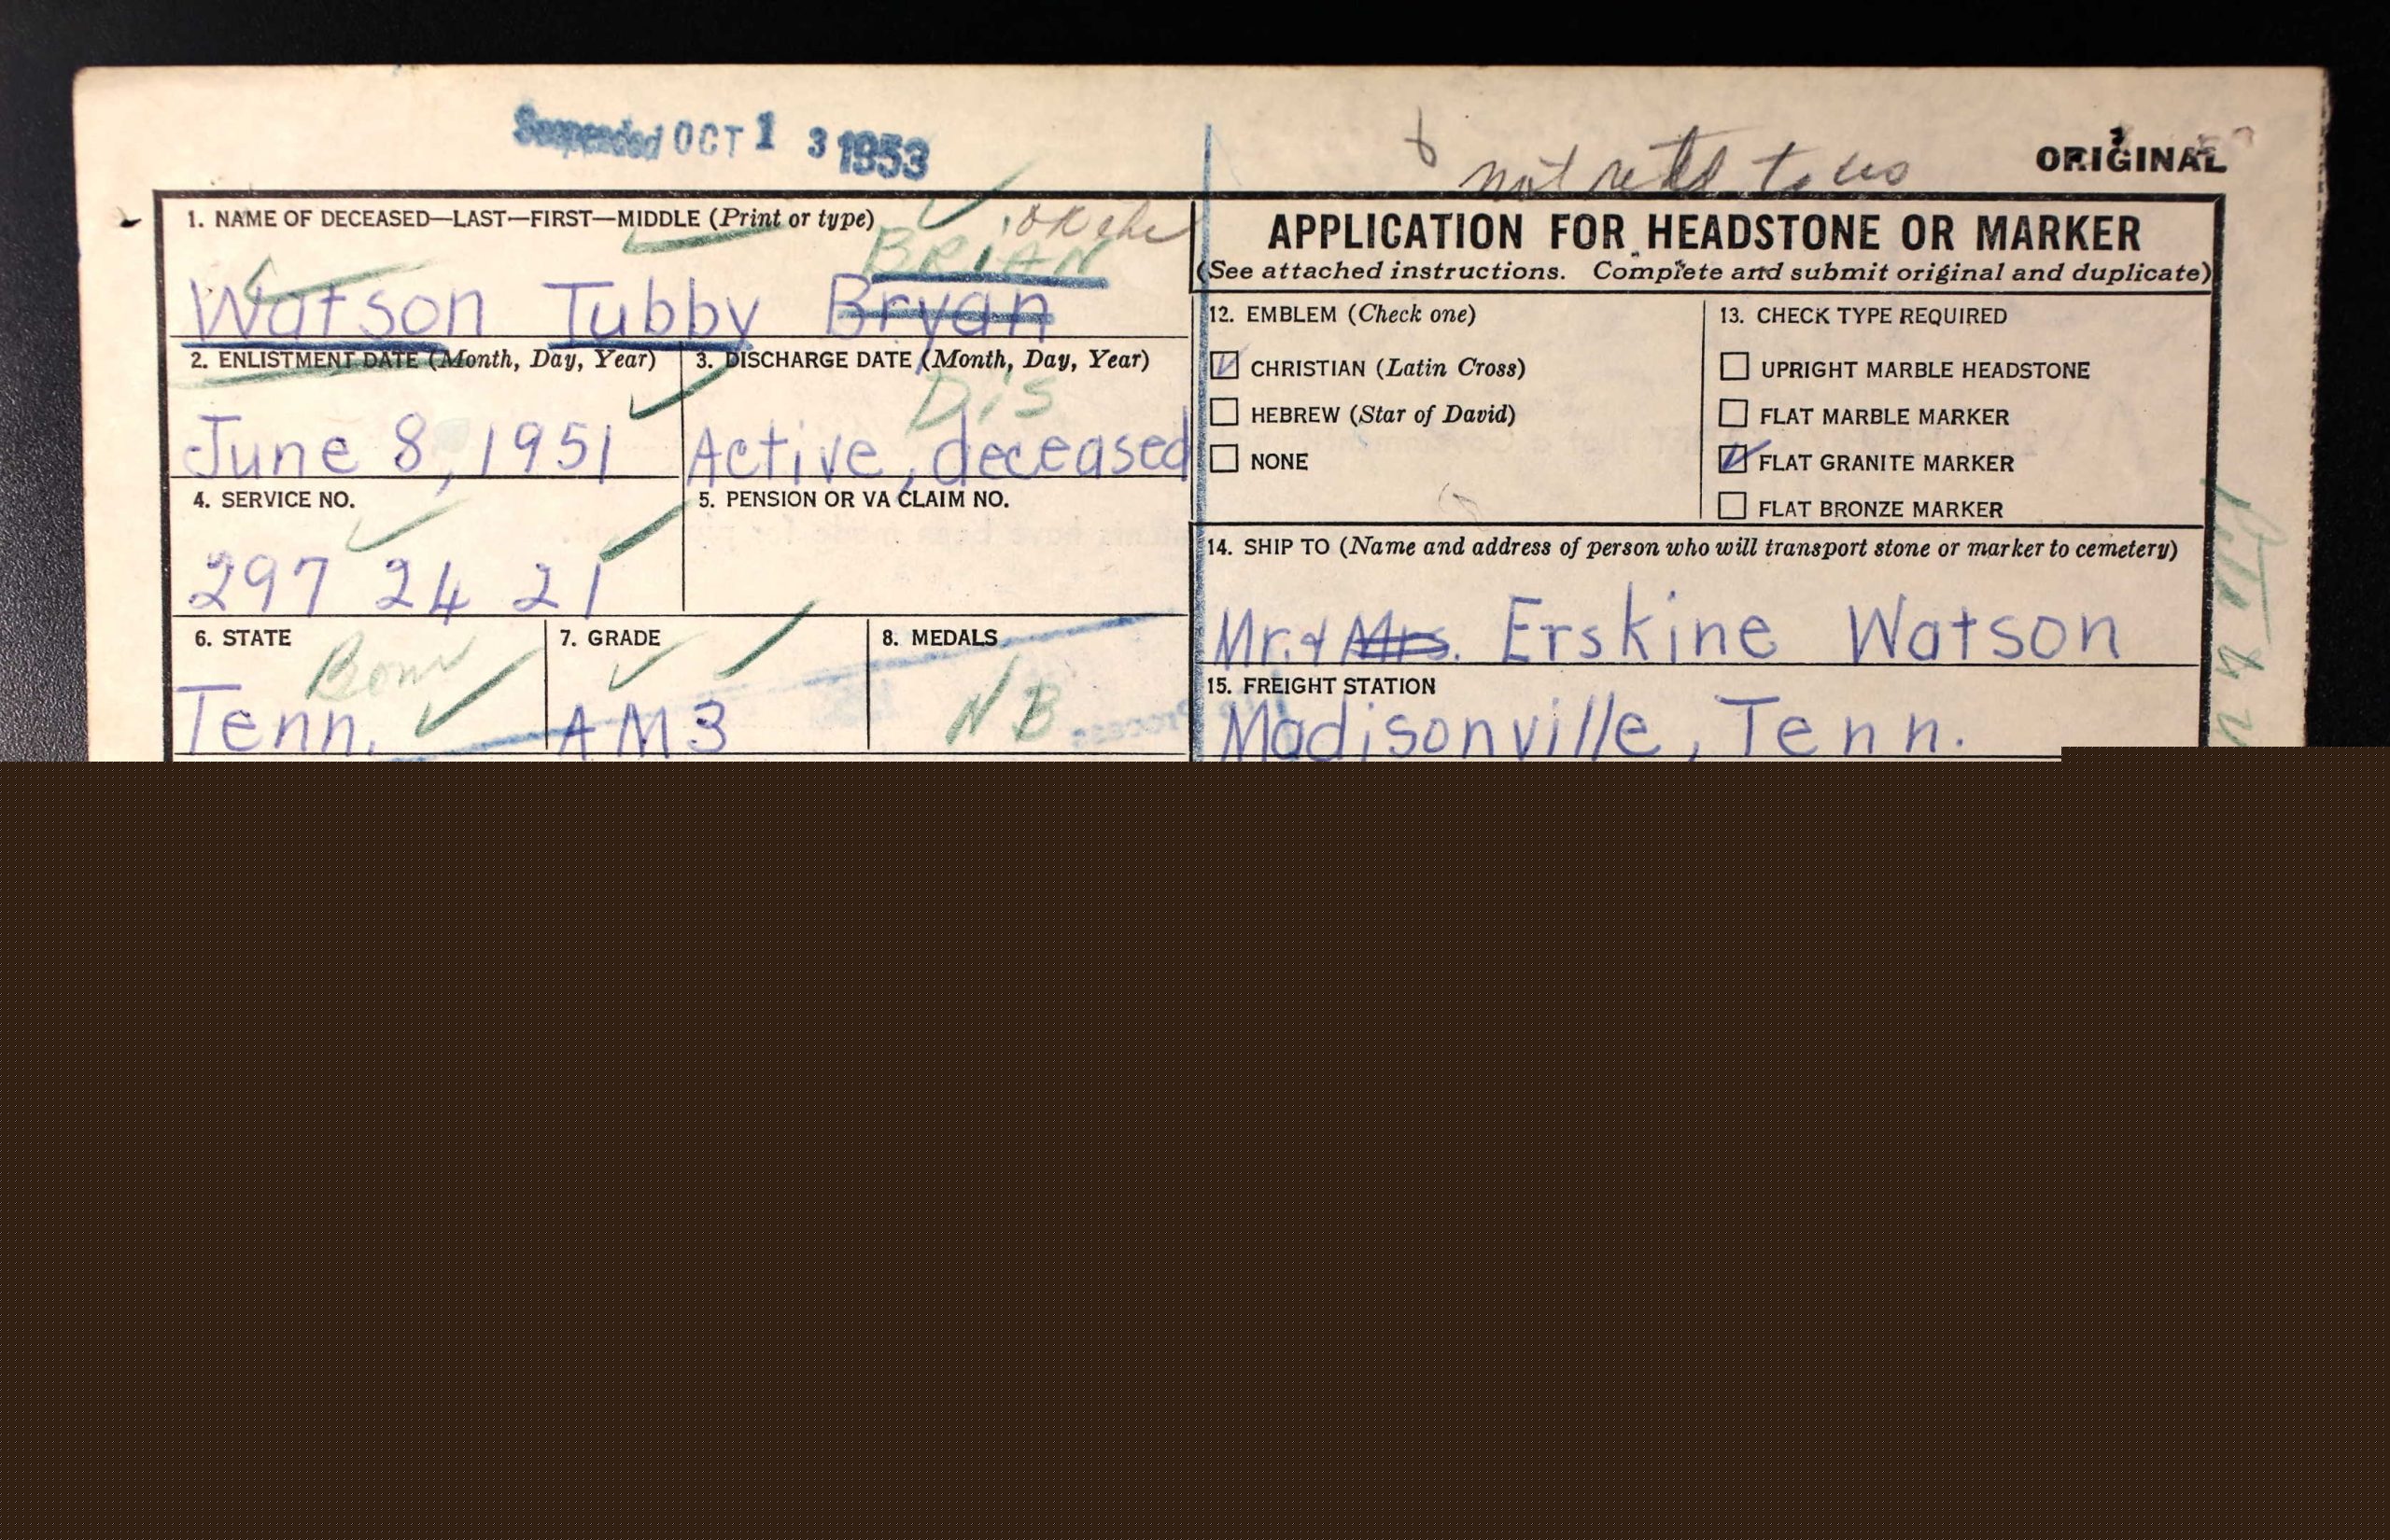 Suspended OCT 1 3 1953
not retd to us
ORIGINAL
1. NAME OF DECEASED—LAST—FIRST—MIDDLE (Print or type)
OK
BRIAN
Watson Tubby Bryan
2. ENLISTMENT DATE (Month, Day, Year)
June 8, 1951
3. DISCHARGE DATE (Month, Day, Year)
Dis
Active, deceased
4. SERVICE NO.
297 24 21
5. PENSION OR VA CLAIM NO.
6. STATE
Tenn.
7. GRADE
AM3
8. MEDALS
NB
APPLICATION FOR HEADSTONE OR MARKER
(See attached instructions. Complete and submit original and duplicate)
12. EMBLEM (Check one)
CHRISTIAN (Latin Cross)
HEBREW (Star of David)
NONE
13. CHECK TYPE REQUIRED
UPRIGHT MARBLE HEADSTONE
FLAT MARBLE MARKER
FLAT GRANITE MARKER
FLAT BRONZE MARKER
14. SHIP TO (Name and address of person who will transport stone or marker to cemetery)
Mr. & Mrs. Erskine Watson
15. FREIGHT STATION
Madisonville, Tenn.